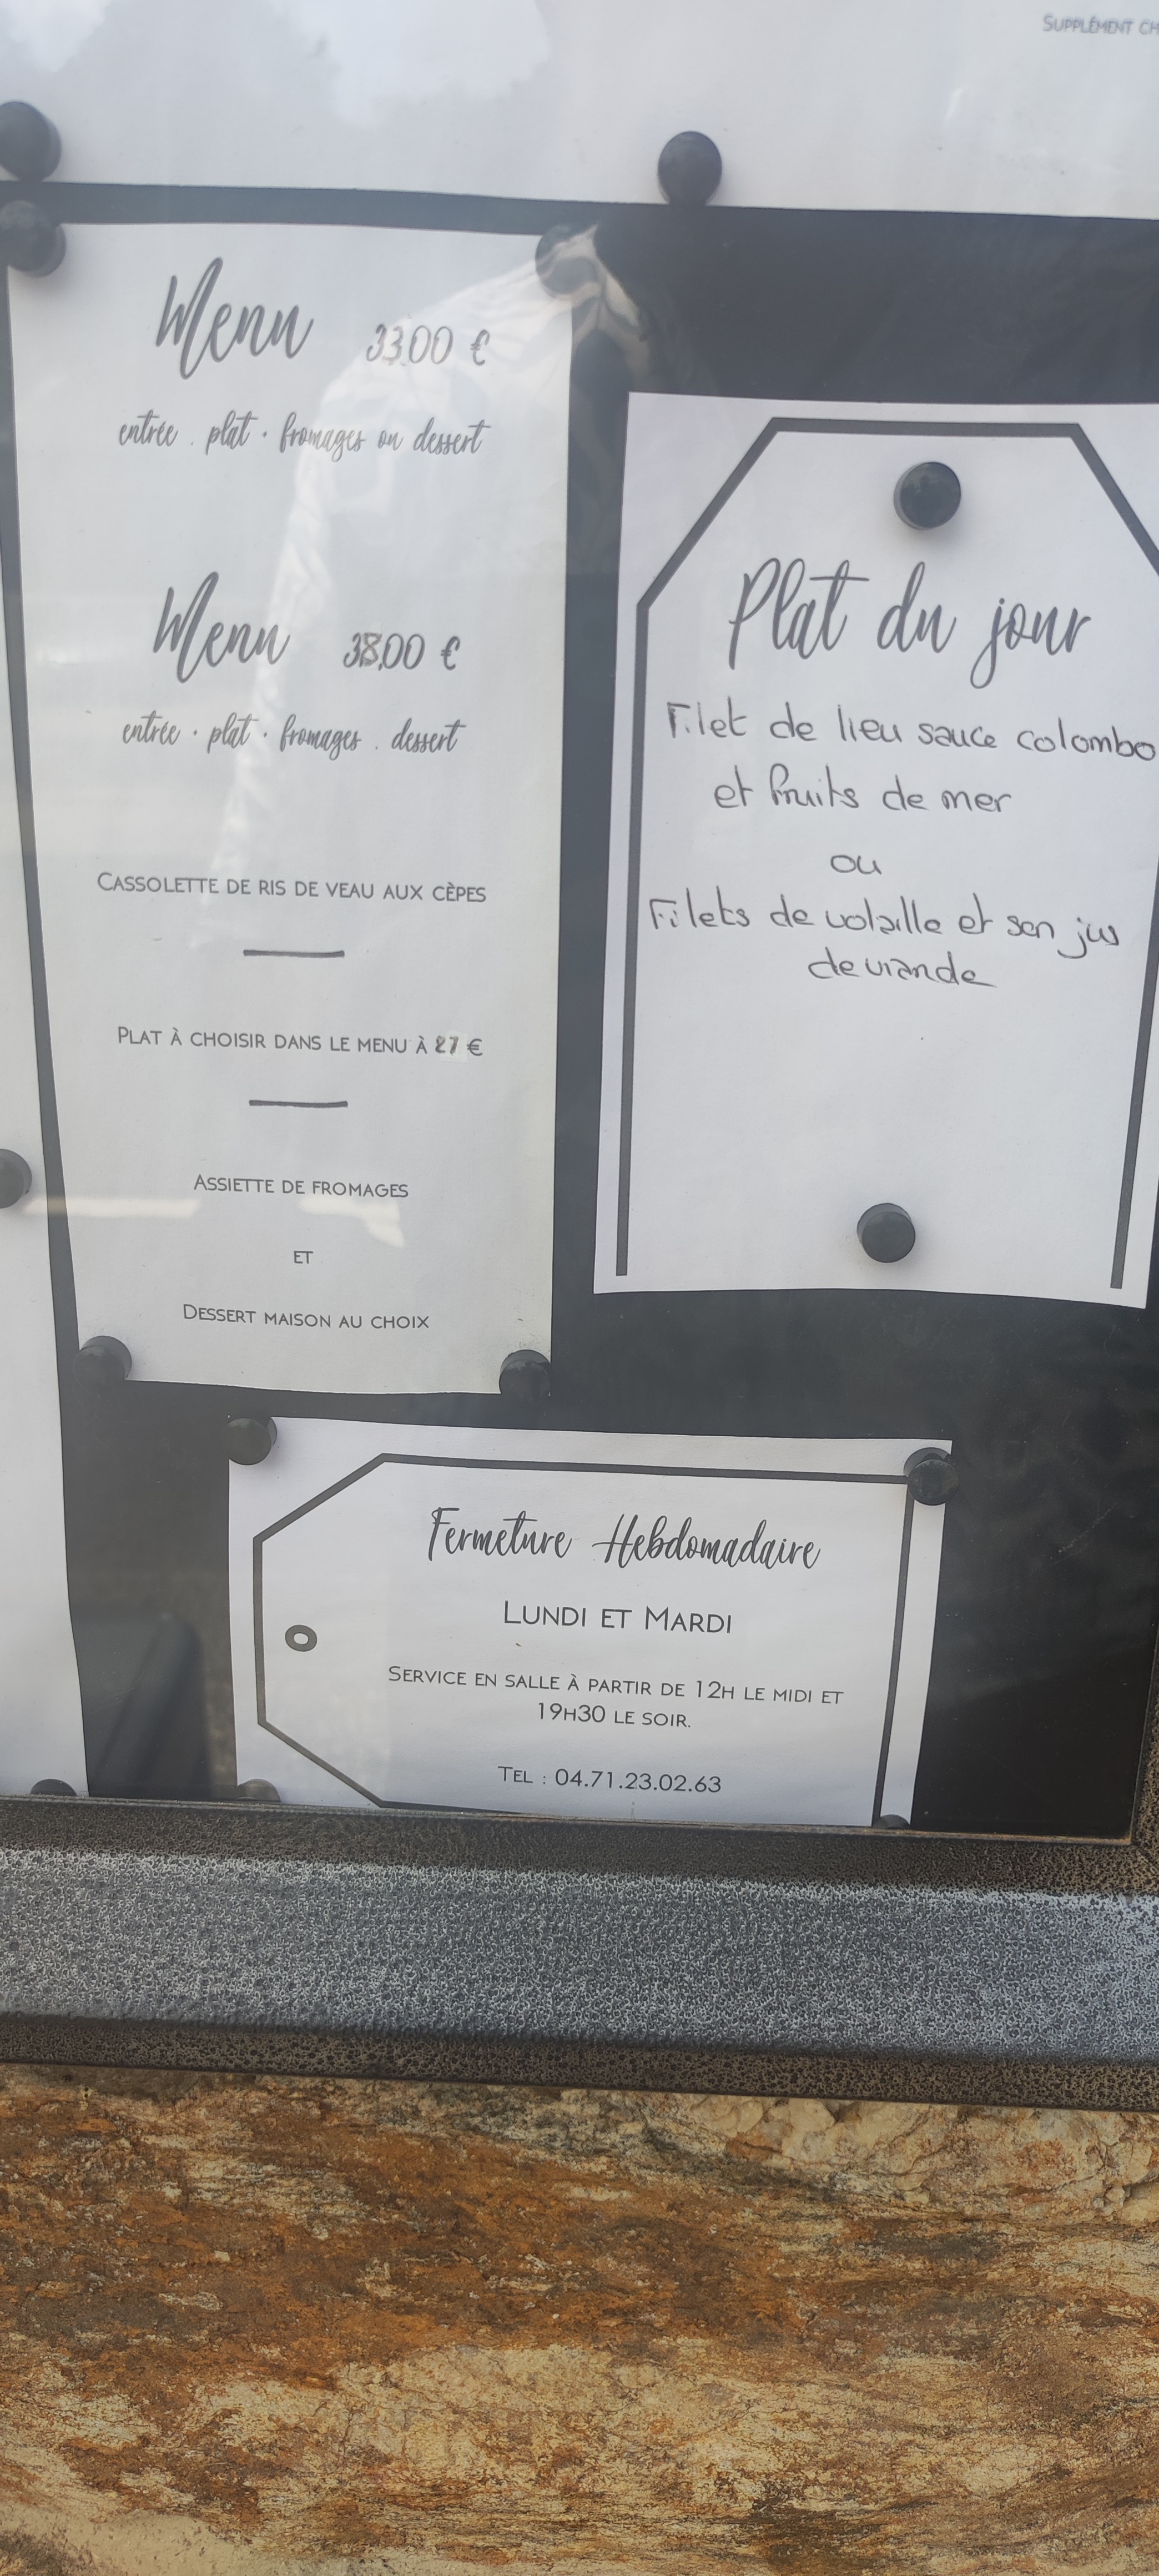 SUPPLÉMENT
Menu 33.00 €
entrée . plat · fromages ou dessert
Menu 38.00 €
entrée · plat · fromages . dessert
CASSOLETTE DE RIS DE VEAU AUX CÈPES
PLAT À CHOISIR DANS LE MENU À 27 €
ASSIETTE DE FROMAGES
ET
DESSERT MAISON AU CHOIX
Plat du jour
Filet de lieu sauce colombo
et fruits de mer
ou
Filets de volaille et son jus
de viande
Fermeture Hebdomadaire
LUNDI ET MARDI
SERVICE EN SALLE À PARTIR DE 12H LE MIDI ET
19H30 LE SOIR.
TEL : 04.71.23.02.63